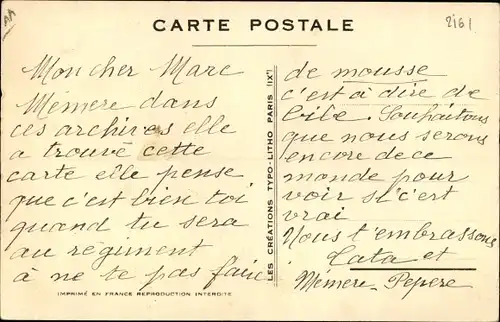 AA
CARTE POSTALE
2161
Mon cher Marc
Mémere dans
ces archives elle
a trouvé cette
carte elle pense
que c'est bien toi
quand tu sera
au régiment
à ne te pas faire
de mousse
c'est à dire de
bile. Souhaitons
que nous serons
encore de ce
monde pour
voir si c'est
vrai
Nous t'embrassons
Tata et
Mémere - Pepere
LES CRÉATIONS TYPO-LITHO PARIS (IXe)
IMPRIMÉ EN FRANCE REPRODUCTION INTERDITE